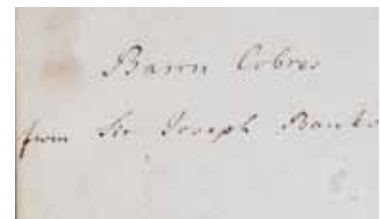 Baron Cobres
from Sir Joseph Banks